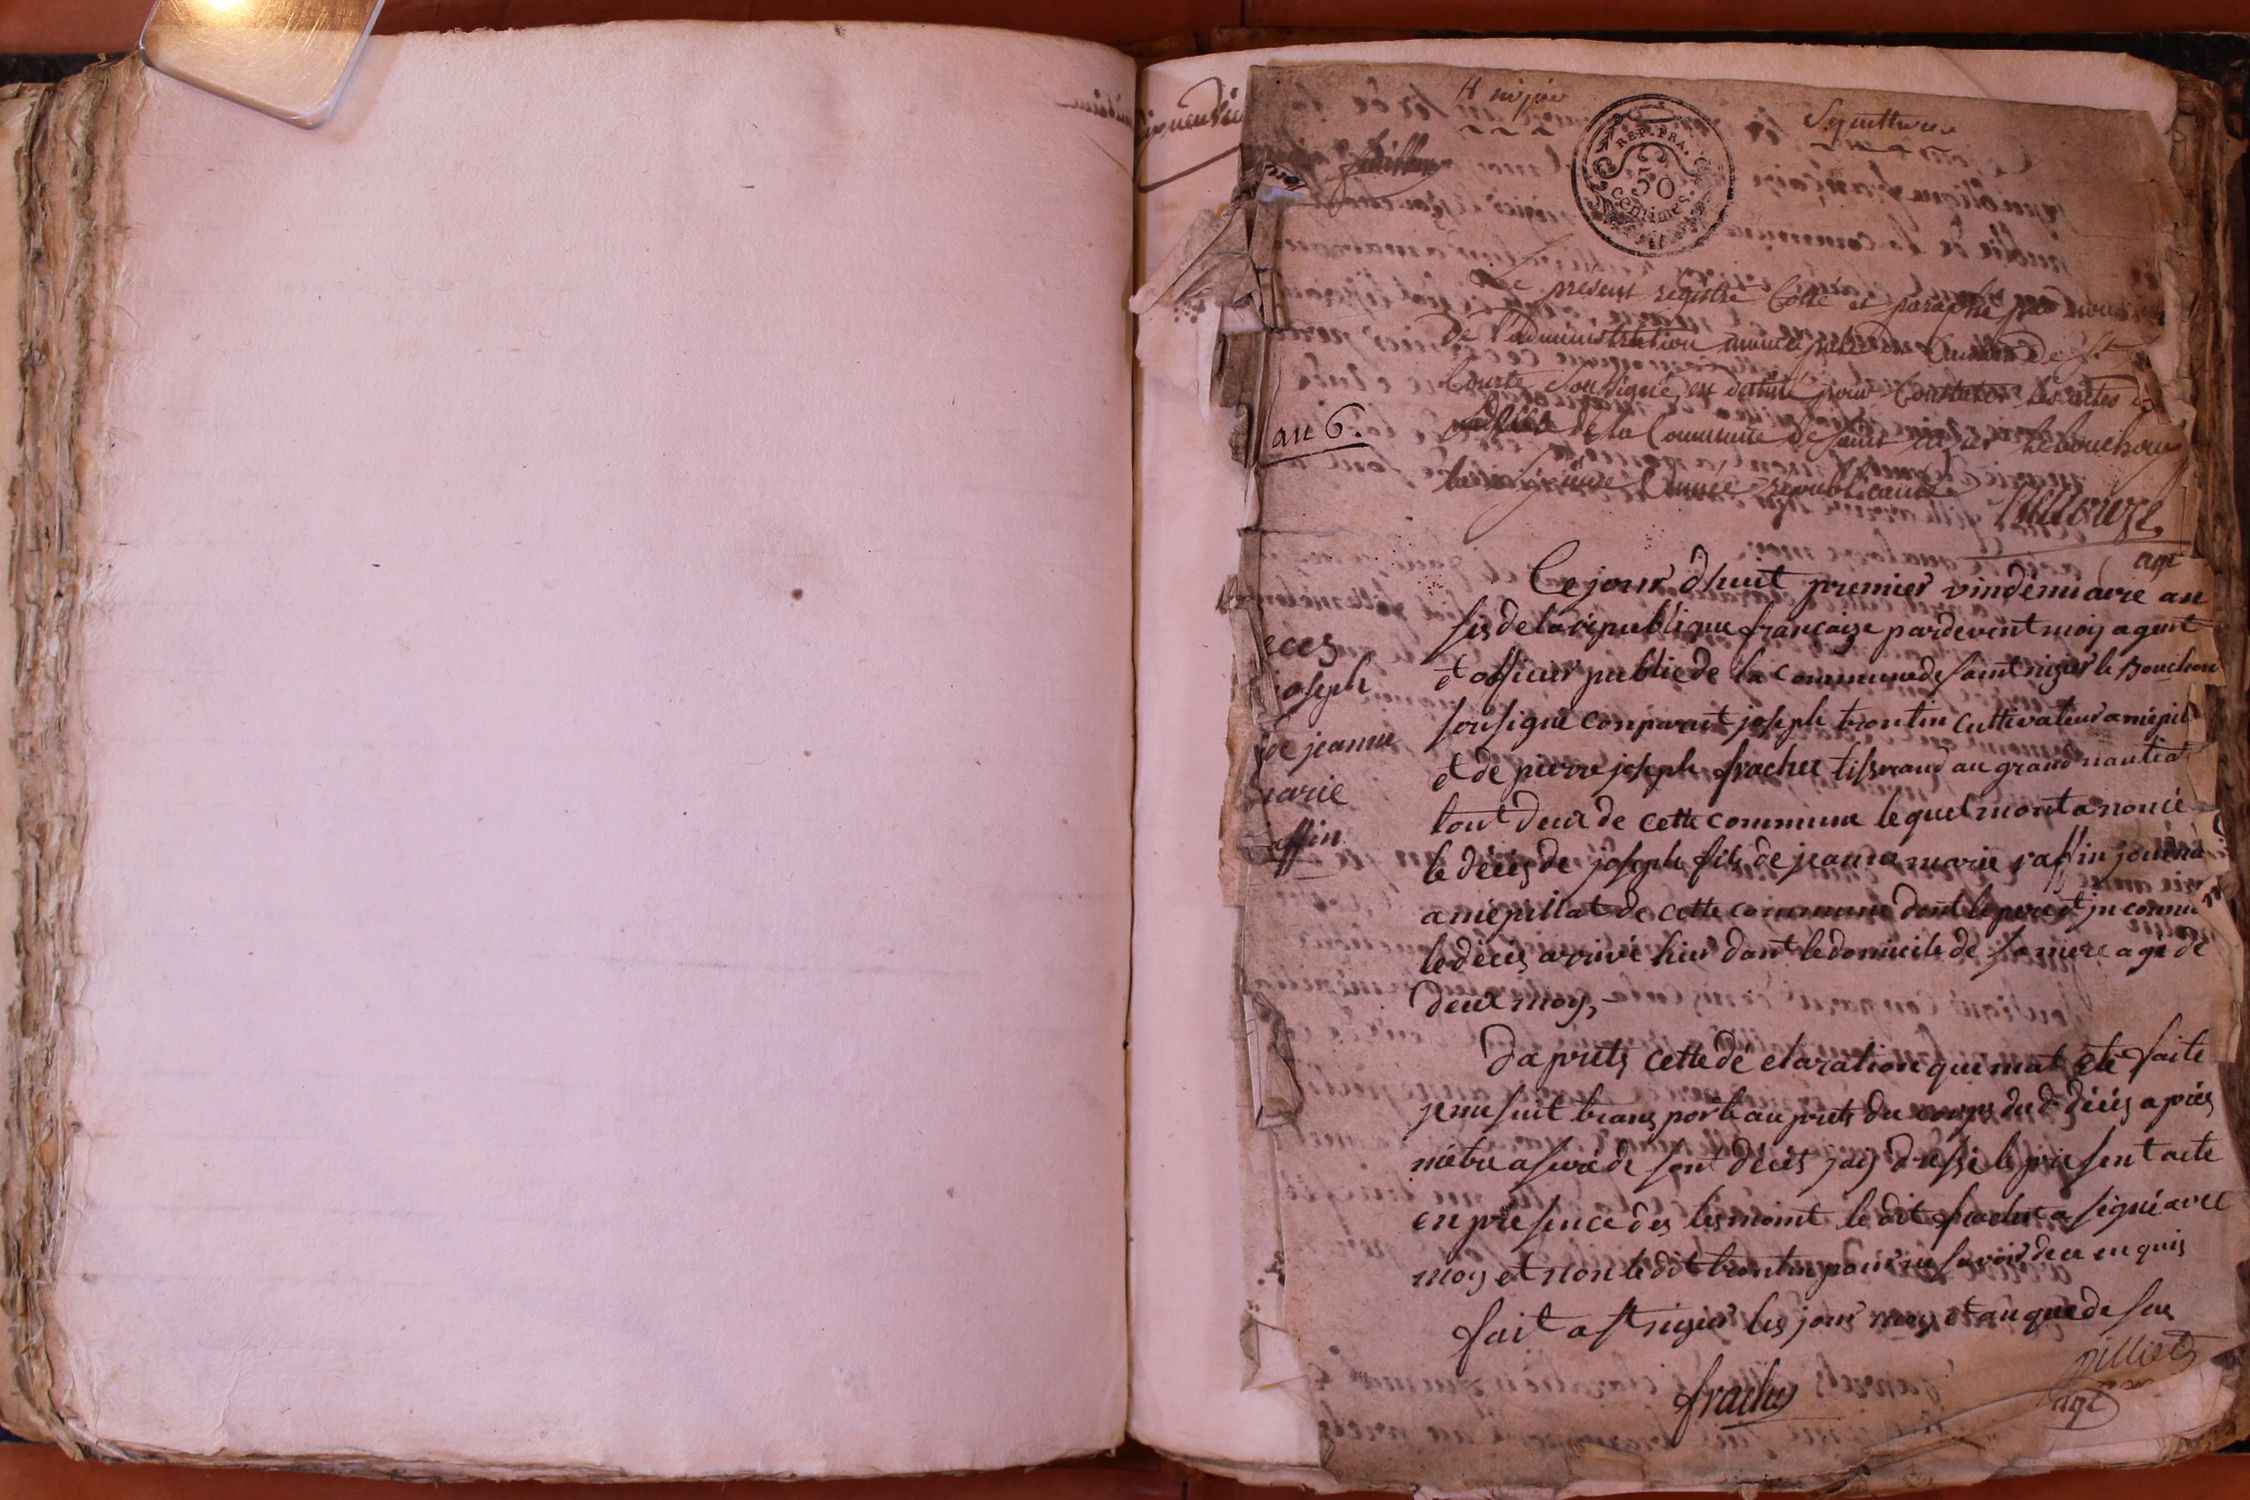 Sepulture
REP. FRA.
50
Centimes
Le present registre Cotté et paraphé par nous
de l'administration municipale du Canton de St
soussigné, est destiné pour Constater les actes de
de la Commune de saint nizier Lebouchoux
an 6.
l'année republicaine
agt
Ce jour d'huit premier vindémiaire an
sis de la republique françaize pardevent moy agent
et officier publicde la commune de saint nizier le Bouchou
sousigné conparait joseph trontin cultivateur a mépil
et de pierre joseph frachet tisserand au grand nantia
tout deux de cette commune lequel mont anoncé
le décés de joseph fils de jeanne marie raffin journa
a mépillat de cette commune dont le pere est jnconnu
le décés arrivé hier dant le domicile de sa mere age de
deux moy,
eces
joseph
de jeanne
marie
affin
Daprets cette dé claration qui mat été faite
je me suit trans porté au prets du corps du d. décés aprés
mètre asuré de sont décés jay dressé le présent acte
en présence des tesmoint le dit frachet a signé avec
moy et non le dit trontin pour ne savoir de ce enquis
fait a St nizier les jour moy et an que de sus
pilliet
frachet
agt